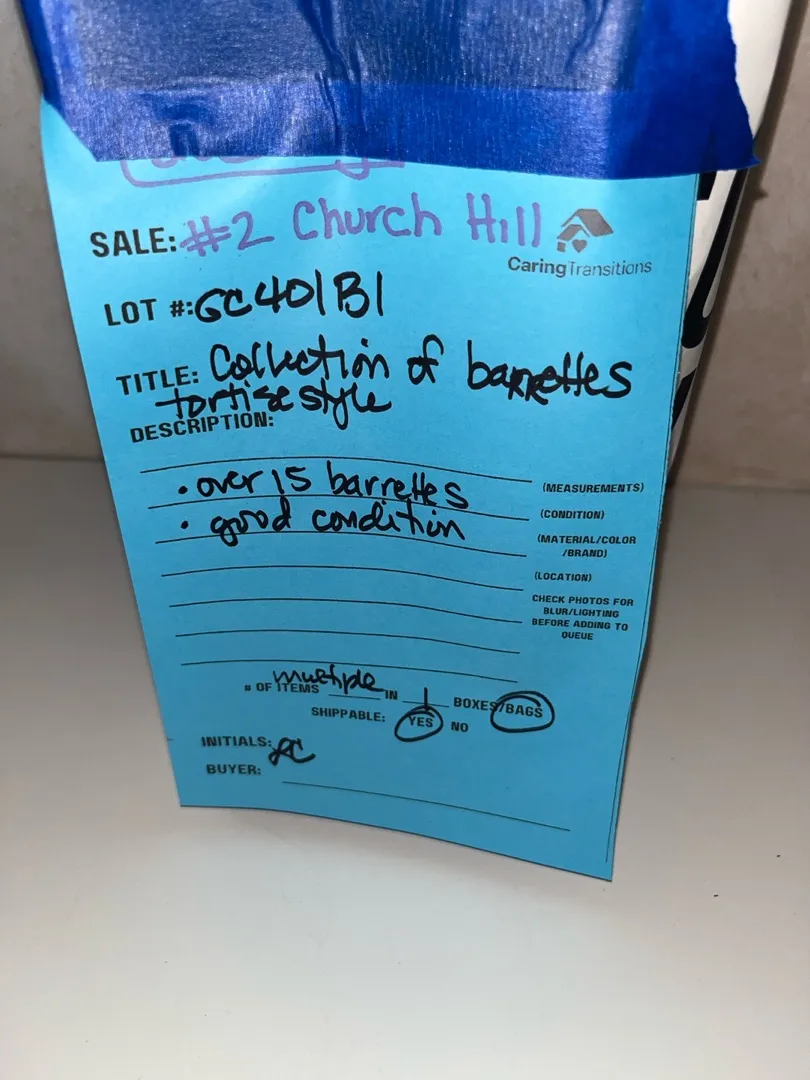 SALE: #2 Church Hill
CaringTransitions
LOT #: GC401B1
TITLE: Collection of barrettes
tortise style
DESCRIPTION:
• over 15 barrettes
(MEASUREMENTS)
• good condition
(CONDITION)
(MATERIAL/COLOR
/BRAND)
(LOCATION)
CHECK PHOTOS FOR
BLUR/LIGHTING
BEFORE ADDING TO
QUEUE
# OF ITEMS multiple IN 1 BOXES/BAGS
SHIPPABLE: YES NO
INITIALS:
BUYER: